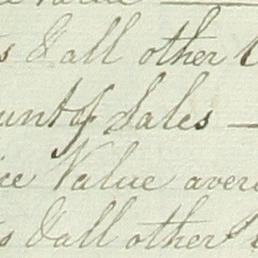 Value
& all other
unt of Sales —
ice Value aver
s & all other